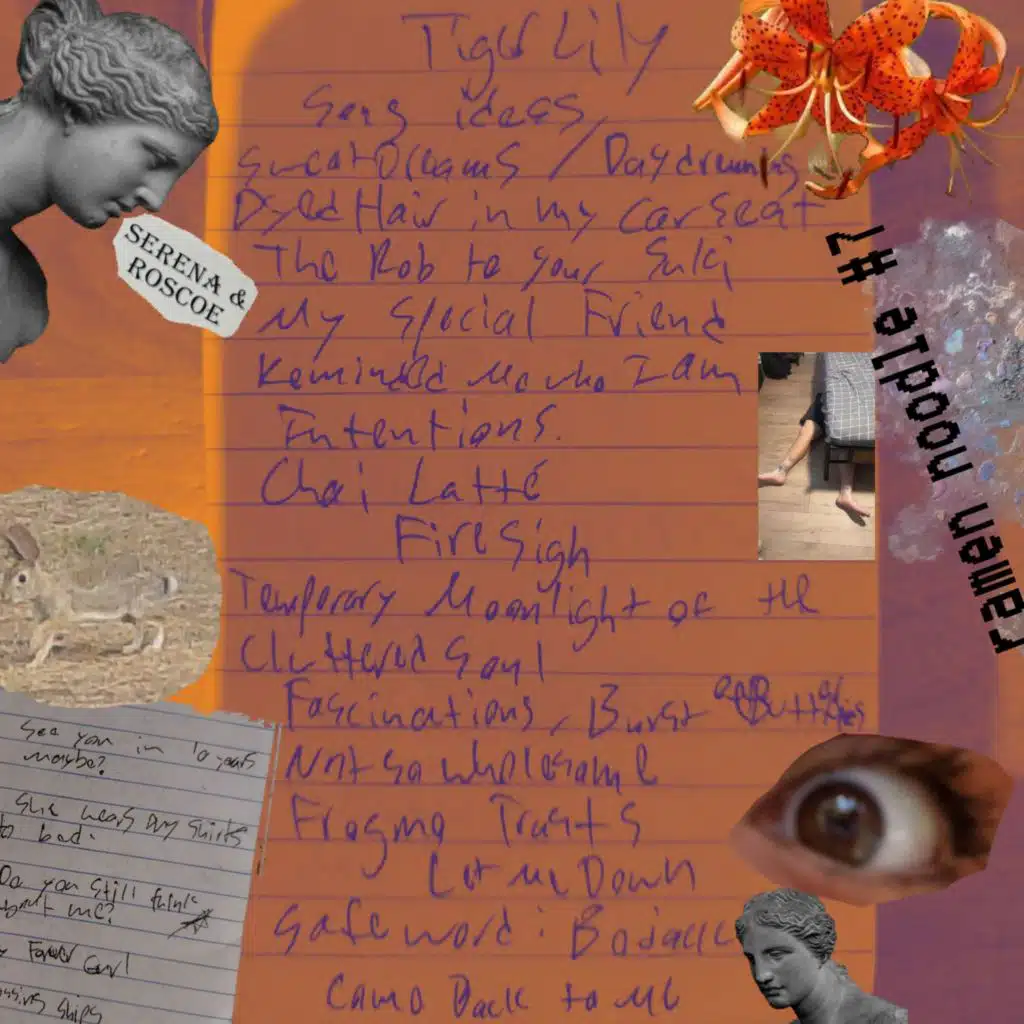 Tiger Lily
Song ideas,
Sweat Dreams / Daydreaming
Dyed Hair in my Carseat
The Rob to your Suki
My Special Friend
Reminded Me who I am
Intentions.
Chai Latté
Fire Sigh
Temporary Moonlight of the
Cluttered Soul
Fascinations, Burst
Not so wholesome
Fragma Trusts
Let me Down
Safe word: Bojack
Came Back to Me
SERENA &
ROSCOE
ramen noodle #7
See you in 10 years
maybe?
She wears my shirts
to bed.
Do you still think
about me?
Forever Girl
Passing Ships